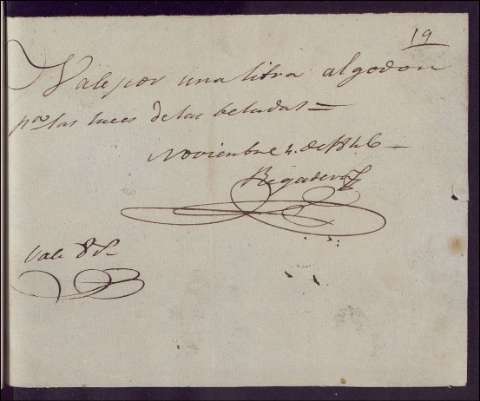 19
Vale por una libra algodon
pra las luces de las beladas =
Noviembre 4. de 1846 -
Regadera
Vale 8 r.